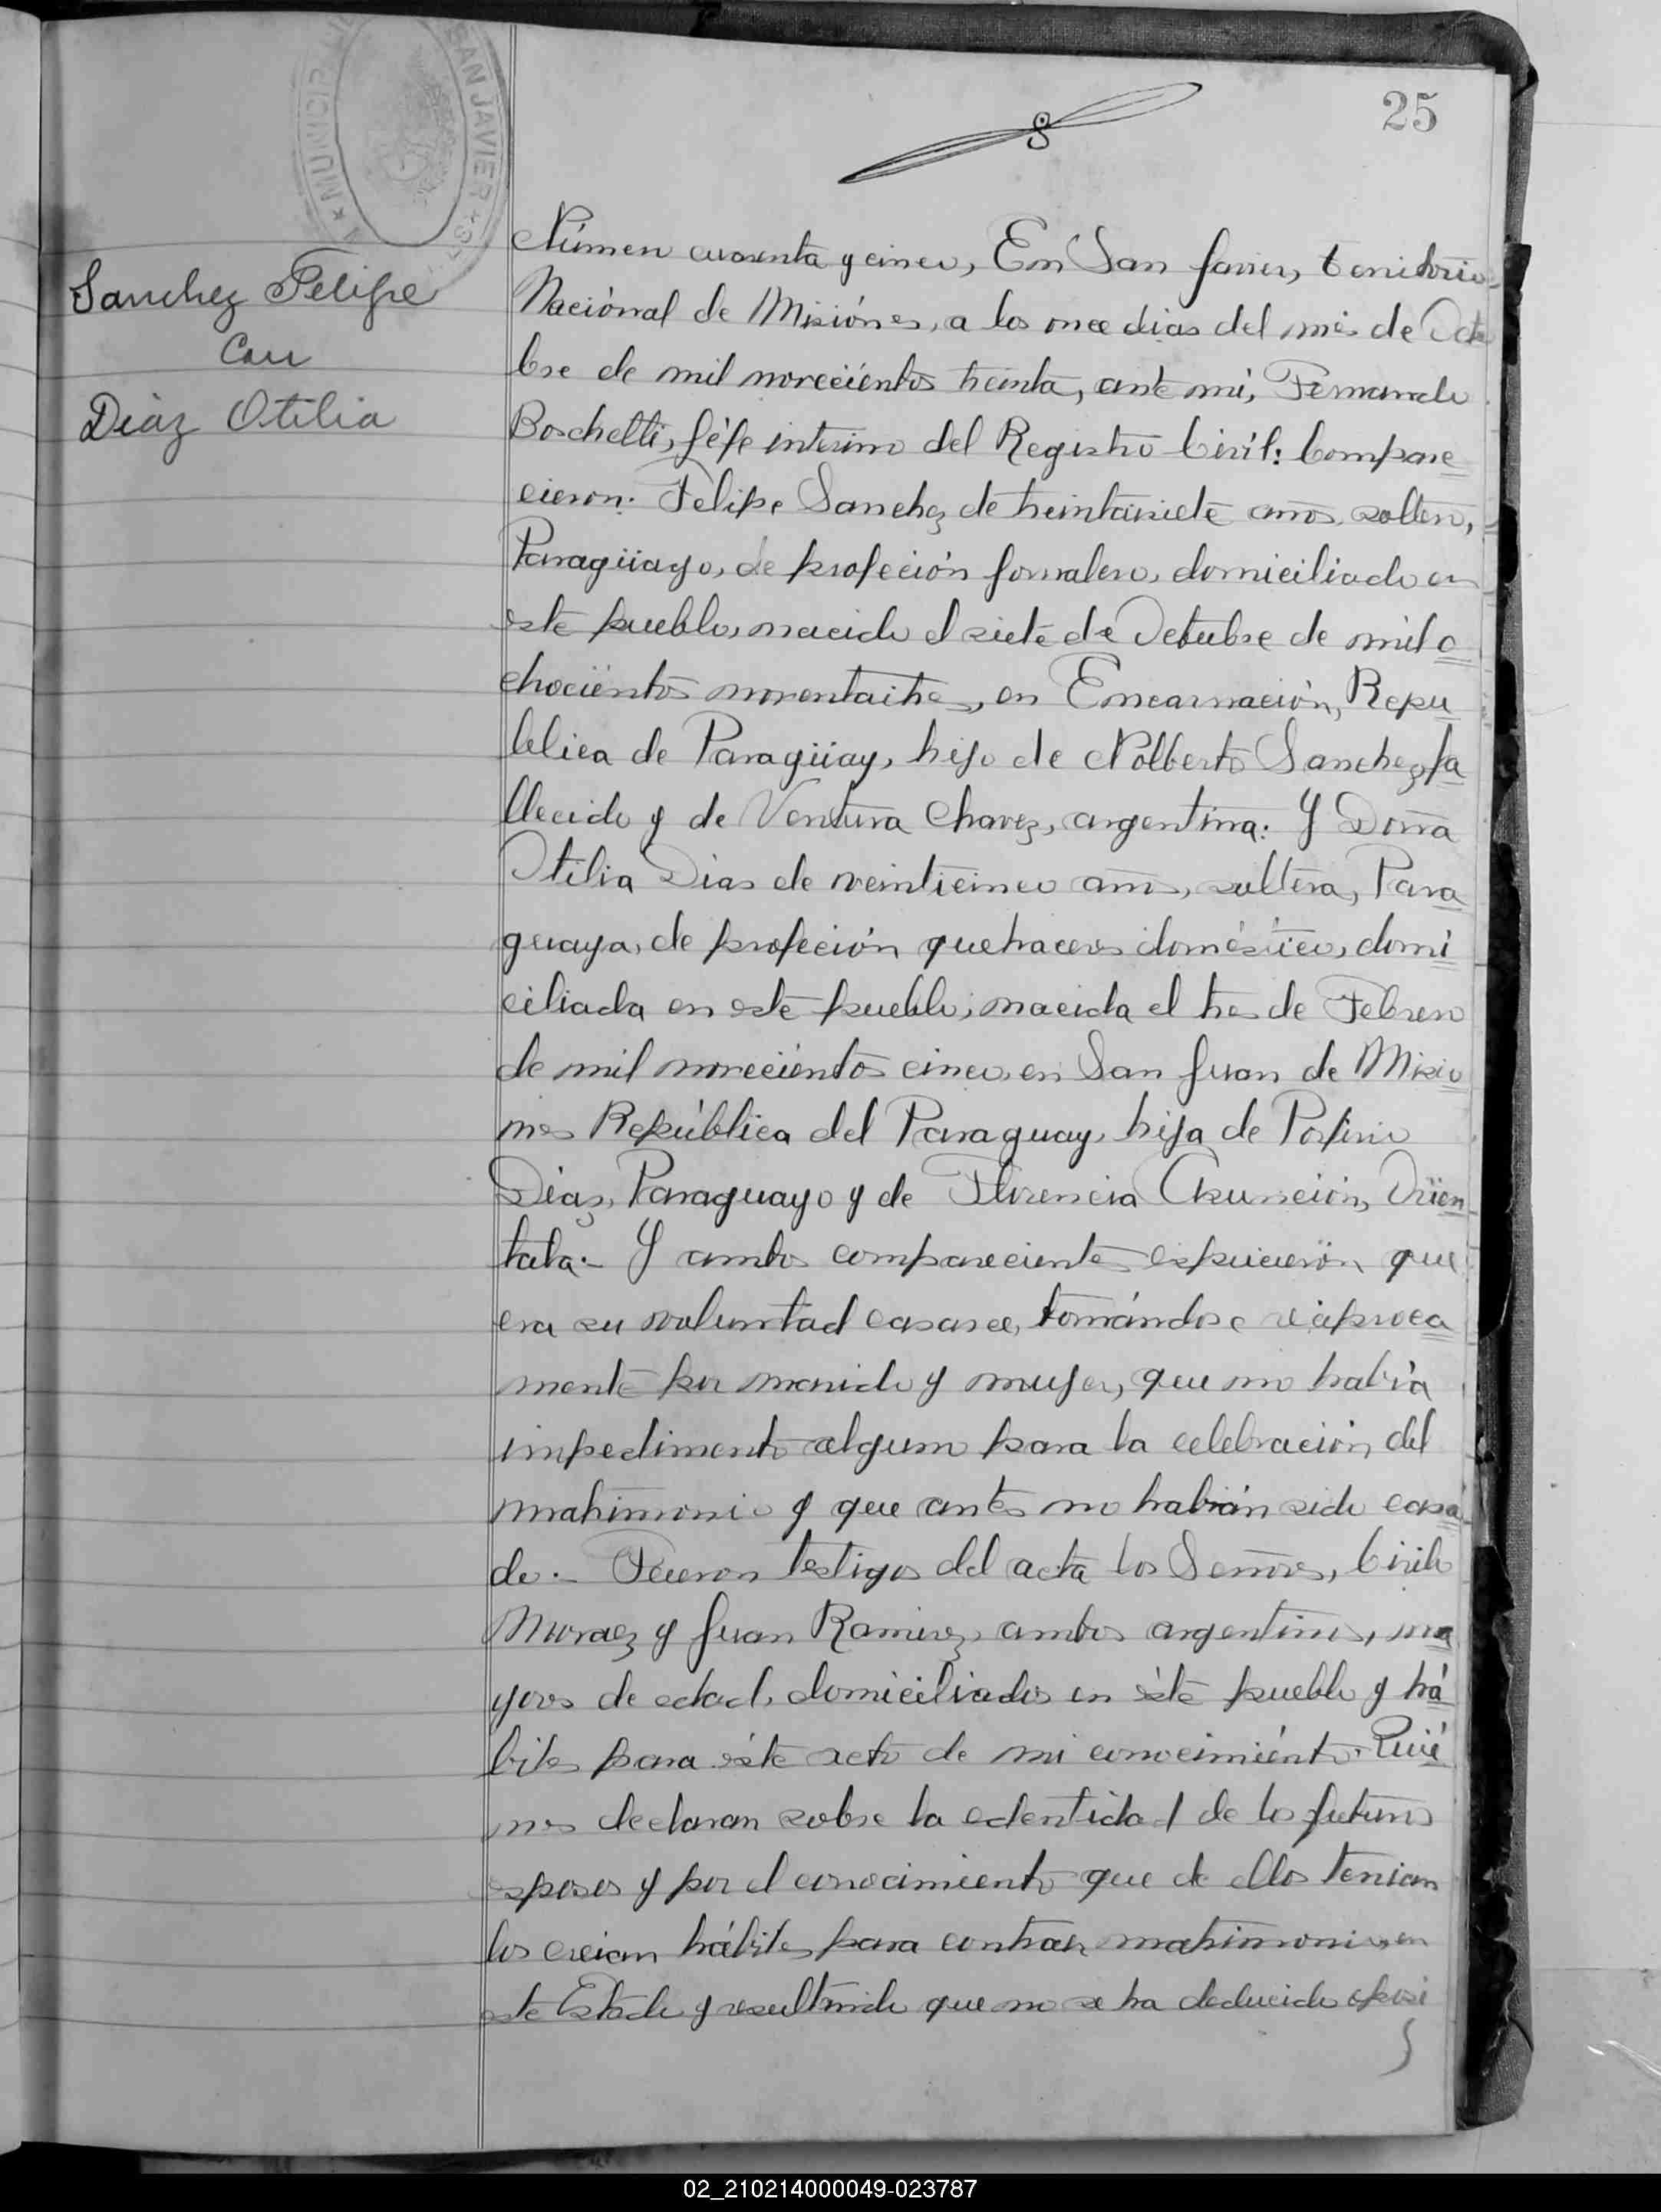 25
MUNICIP
SAN JAVIER
Sanchez Felipe
Con
Diaz Otilia
Número cuarenta y cinco, En San Javier, territorio
Naciónal de Misiónes, a los once dias del més de Octu
bre de mil noveciéntos treinta, ante mi, Fernando
Boschetti, Jéfe interino del Registro Civil: Compare
cieron: Felipe Sanchez de treintaisiete años, soltero,
Paragüayo, de profeción jornalero, domiciliado en
este pueblo, nacido el siete de Octubre de mil o
chociéntos noventaitres, en Encarnación, Repu
blica de Paragüay, hijo de Nolberto Sanchez, fa
llecido y de Ventura Chavez, argentina: Y Doña
Otilia Dias de veinticinco años, soltera, Para
guaya, de profeción quehaceres doméstico, domi
ciliada en este pueblo, nacida el tres de Febrero
de mil noveciéntos cinco, en San Juan de Misio
nes República del Paraguay, hija de Porfirio
Diaz, Paraguayo y de Florencia Asunción, Orien
tala.- Y ambos compareciente espucieron que
era su voluntad casarce, tomándose reciproca
mente por marido y mujer, que no habia
impedimento alguno para la celebración del
matrimonio y que antes no habian sido casa
do.- Fueron testigos del acta los Señores, Cirilo
Moraez y Juan Ramirez, ambos argentinos, ma
yores de edad, domiciliados en éste pueblo y há
biles para éste acto de mi conocimiénto. Quié
nes declaran sobre la edentidad de los futuros
esposos y por el conocimiento que de ellos tenian
los creian hábiles para contraer matrimonio, en
este Estado y resultando que no se ha deducido oposi
02_210214000049-023787